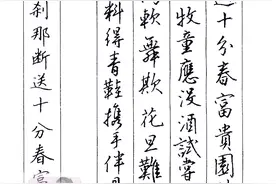 送十分春富貴園
牧童應沒酒試嘗
軟舞欺花旦難
料得青鞋携手伴
刹那断送十分春富